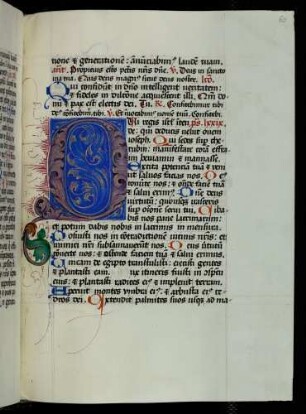 tione & generatione: annūciabimꝰ laudē tuam.
añt. Propicius esto pctis nr̄is dñe. V. Deus in sancto
via tua. Quis deus magnꝰ sicut deus noster.
Qui confidunt in dño intelligent veritatem:
& fideles in dilectione acquiescent illi. Qm̄ do-
& pax est electis dei. Confitebimur tibi
Qui regis isrl̄ inten-
de: qui deducis velut ouem
ioseph. Qui sedes sup che-
rubim: manifestare corā effra-
im beniamin & manasse.
Excita potentiā tuā & ve-
ni: ut saluos facias nos. Deus
conuerte nos: & onde faciē tuā
& salui erimus. Dñe deus
virtutū: quousqꝫ irasceris
sup orōnē serui tui. Ciba-
bis nos pane lacrimarum:
et potum dabis nobis in lacrimis in mensura.
Posuisti nos in cōtradictionē vicinis nr̄is: et
inimici nr̄i subsannauerūt nos. Deus virtutū
conuerte nos: & ostende faciem tuā & salui erimus.
Vineam de egipto transtulisti: eiecisti gentes
& plantasti eam. Dux itineris fuisti in cōspectu
eius: & plantasti radices eiꝰ & impleuit terram.
Operuit montes vmbra eiꝰ: & arbusta eiꝰ ce-
dros dei. Extendit palmites suos usqꝫ ad ma-